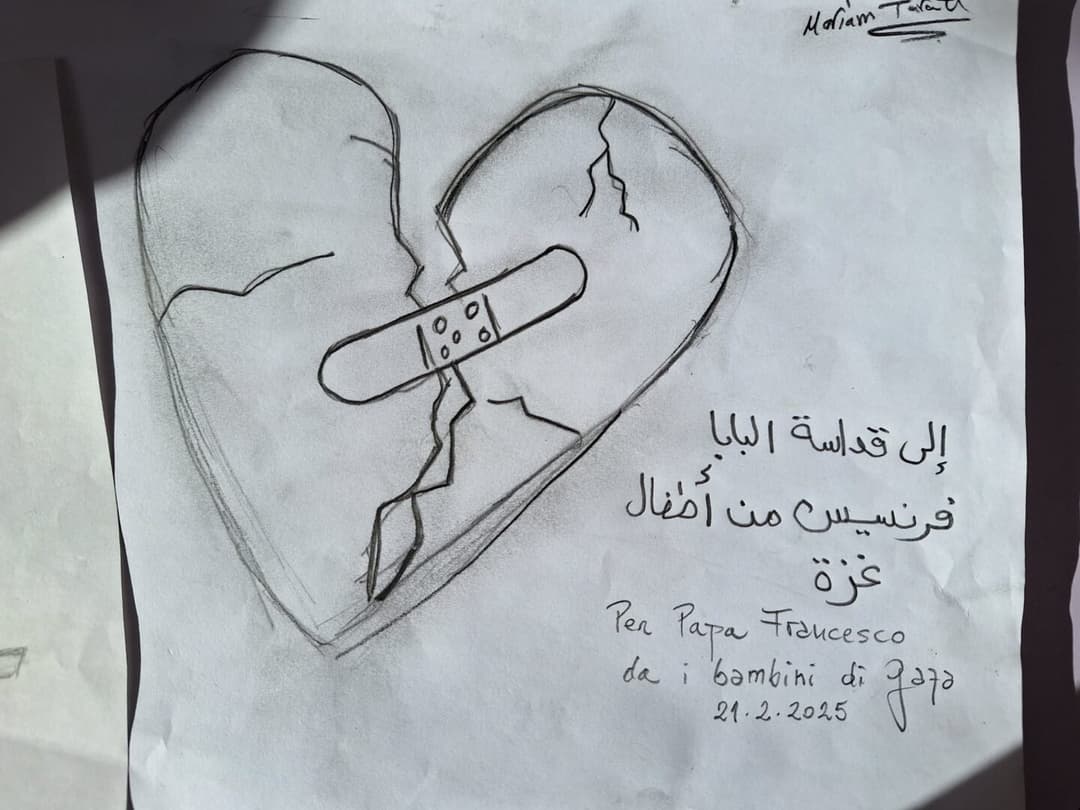 Mariam
إلى قداسة البابا
فرنسيس من أطفال
غزة
Per Papa Francesco
da i bambini di gaza
21.2.2025